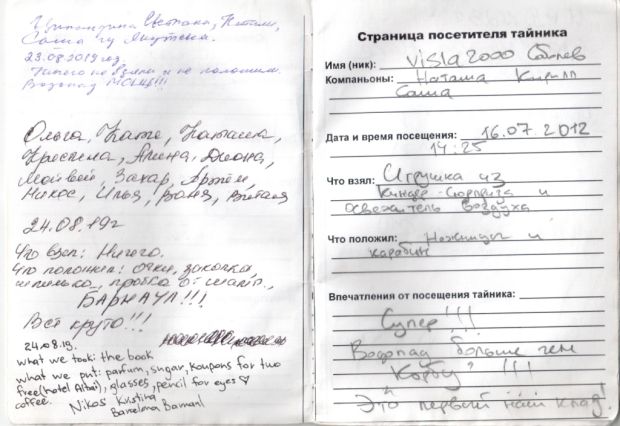 Светлана,
Саша из Якутска.
23.08.2019 год.
Ничего не взяли и не положили.
Водопад МОЩЬ!!!
Ольга, Катя, Наташа,
Кристина, Алина, Диана,
Матвей, Захар, Артём,
Никос, Илья, Ваня, Виталя
24.08.19г
Что взял: Ничего.
Что положил: очки, заколка,
шпилька, пробка от шамп.,
БАРНАУЛ!!!
Всё круто!!!
24.08.19.
what we took: the book
what we put: parfum, sugar, koupons for two
free(hotel Altai), glasses, pencil for eyes ♡
coffee.
Nikos Kristina
Barcelona Barnaul
Страница посетителя тайника
Имя (ник): vista2000
Компаньоны: Наташа Кирилл
Саша
Дата и время посещения: 16.07.2012
14:25
Что взял: Игрушка из
Киндер-Сюрприза и
освежитель воздуха
Что положил: Ножницы и
карабин
Впечатления от посещения тайника:
Супер!!!
Водопад больше чем
"Корбу" !!!
Это первый наш клад!